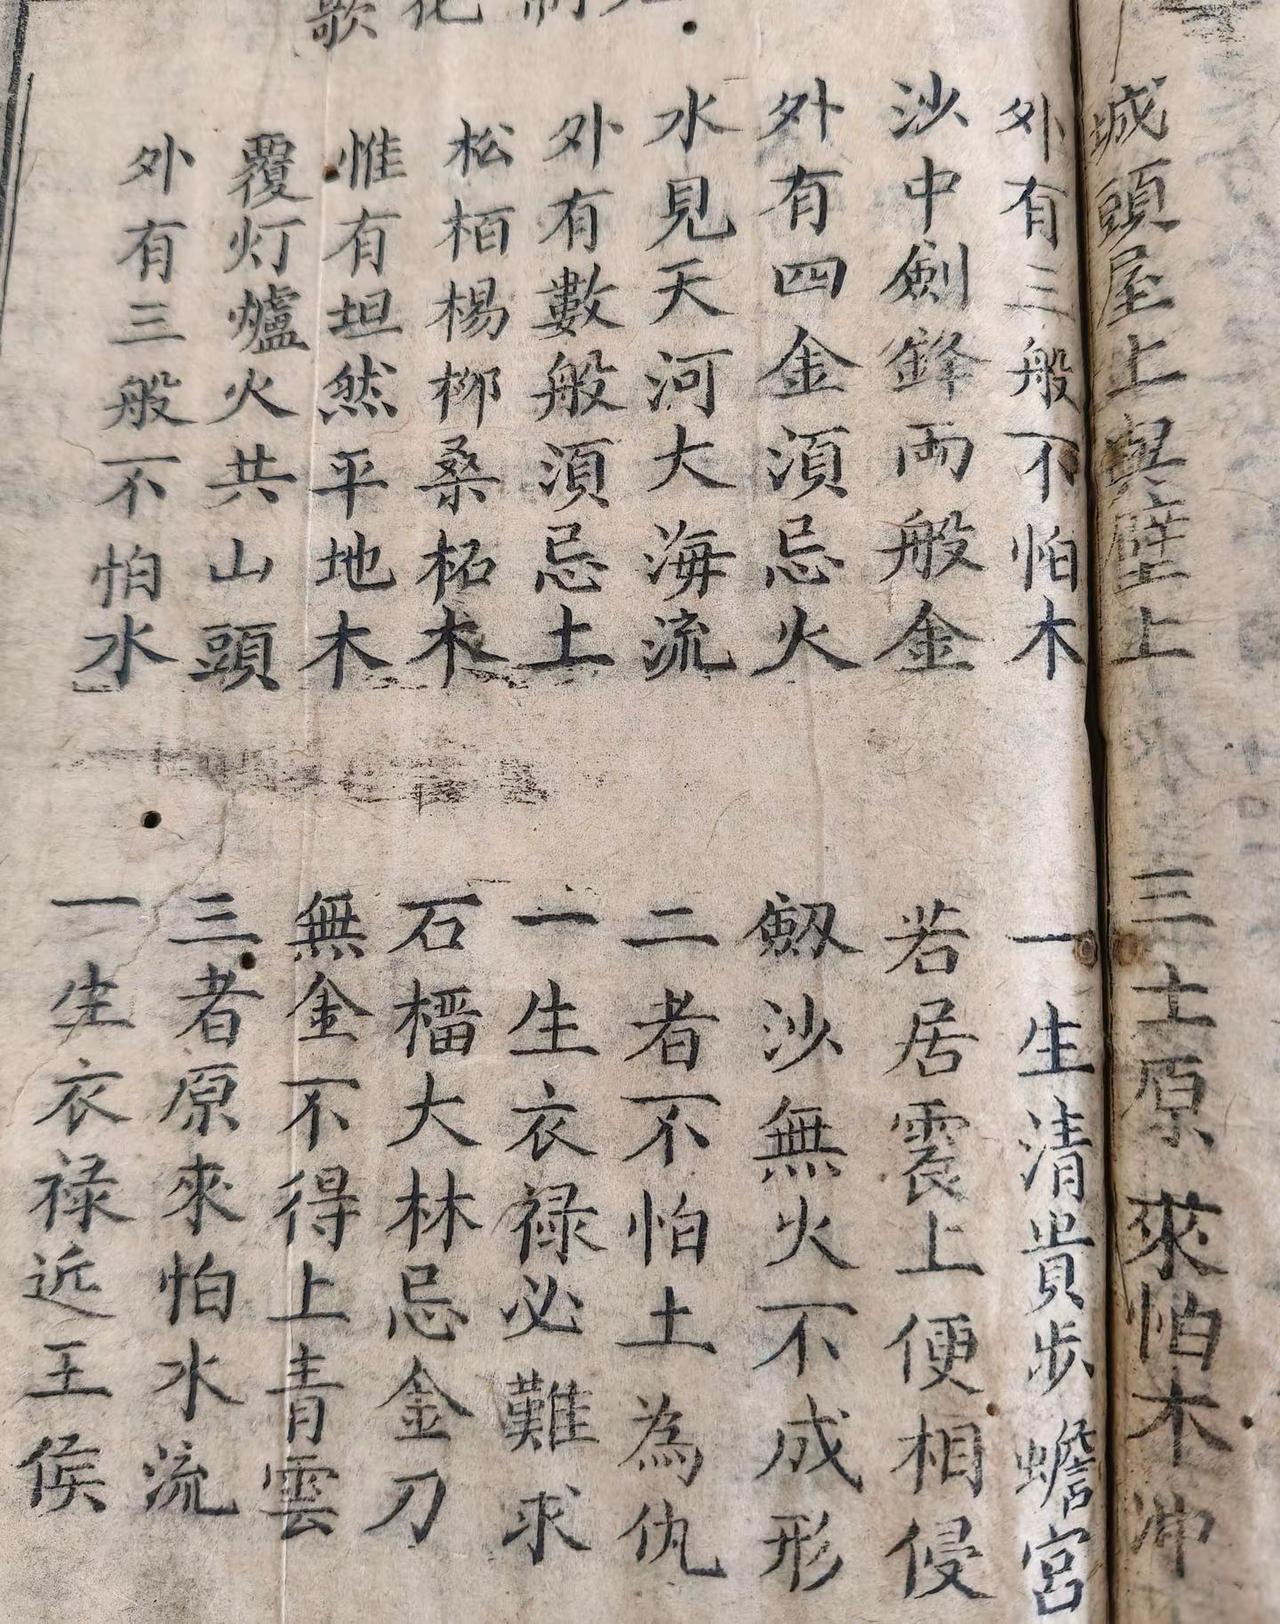 城頭屋上與壁上
三土原來怕木冲
外有三般不怕木
一生清貴步蟾宮
沙中劍鋒両般金
若居震上便相侵
外有四金須忌火
劔沙無火不成形
水見天河大海流
二者不怕土為仇
外有數般須忌土
一生衣禄必難求
松栢楊柳桑柘木
石榴大林忌金刀
惟有坦然平地木
無金不得上青雲
覆灯爐火共山頭
三者原來怕水流
外有三般不怕水
一生衣禄近王侯
歌